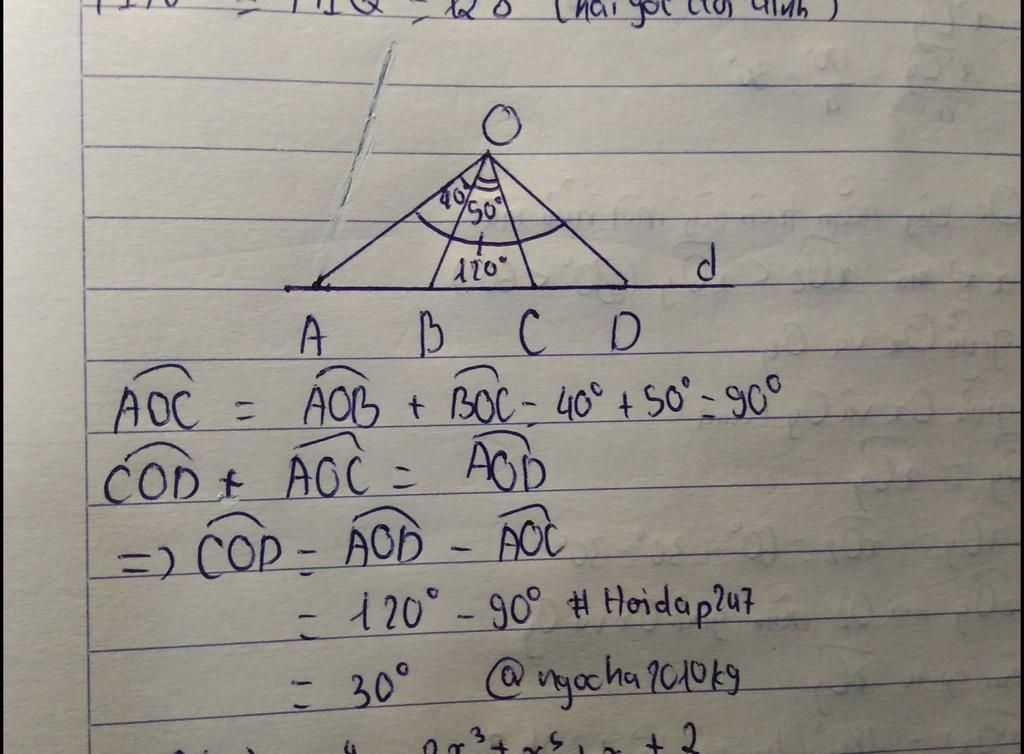 = = 120 (hai góc đối đỉnh)
O
40° 50°
120°
d
A B C D
AOC = AOB + BOC = 40° + 50° = 90°
COD + AOC = AOD
=> COD = AOD - AOC
= 120° - 90° # Hoidap247
= 30° @ngocha2010kg
x³ + x⁵ + 2